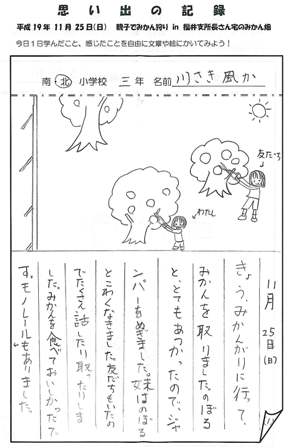 思い出の記録
平成19年 11月 25日(日) 親子でみかん狩り in 福井支所長さん宅のみかん畑
今日1日学んだこと、感じたことを自由に文章や絵にかいてみよう!
南・北 小学校 三年 名前 川さき 風か
友だち
わたし
11月25日(日)
きょう、みかんがりに行って、
みかんを取りました。のぼる
ととてもあつかったので、ジャ
ンパーをぬぎました。妹はのぼる
とこわくなきました。友だちもいたの
でたくさん話したり取ったりしま
した。みかんを食べておいしかったで
す。モノレールもありました。